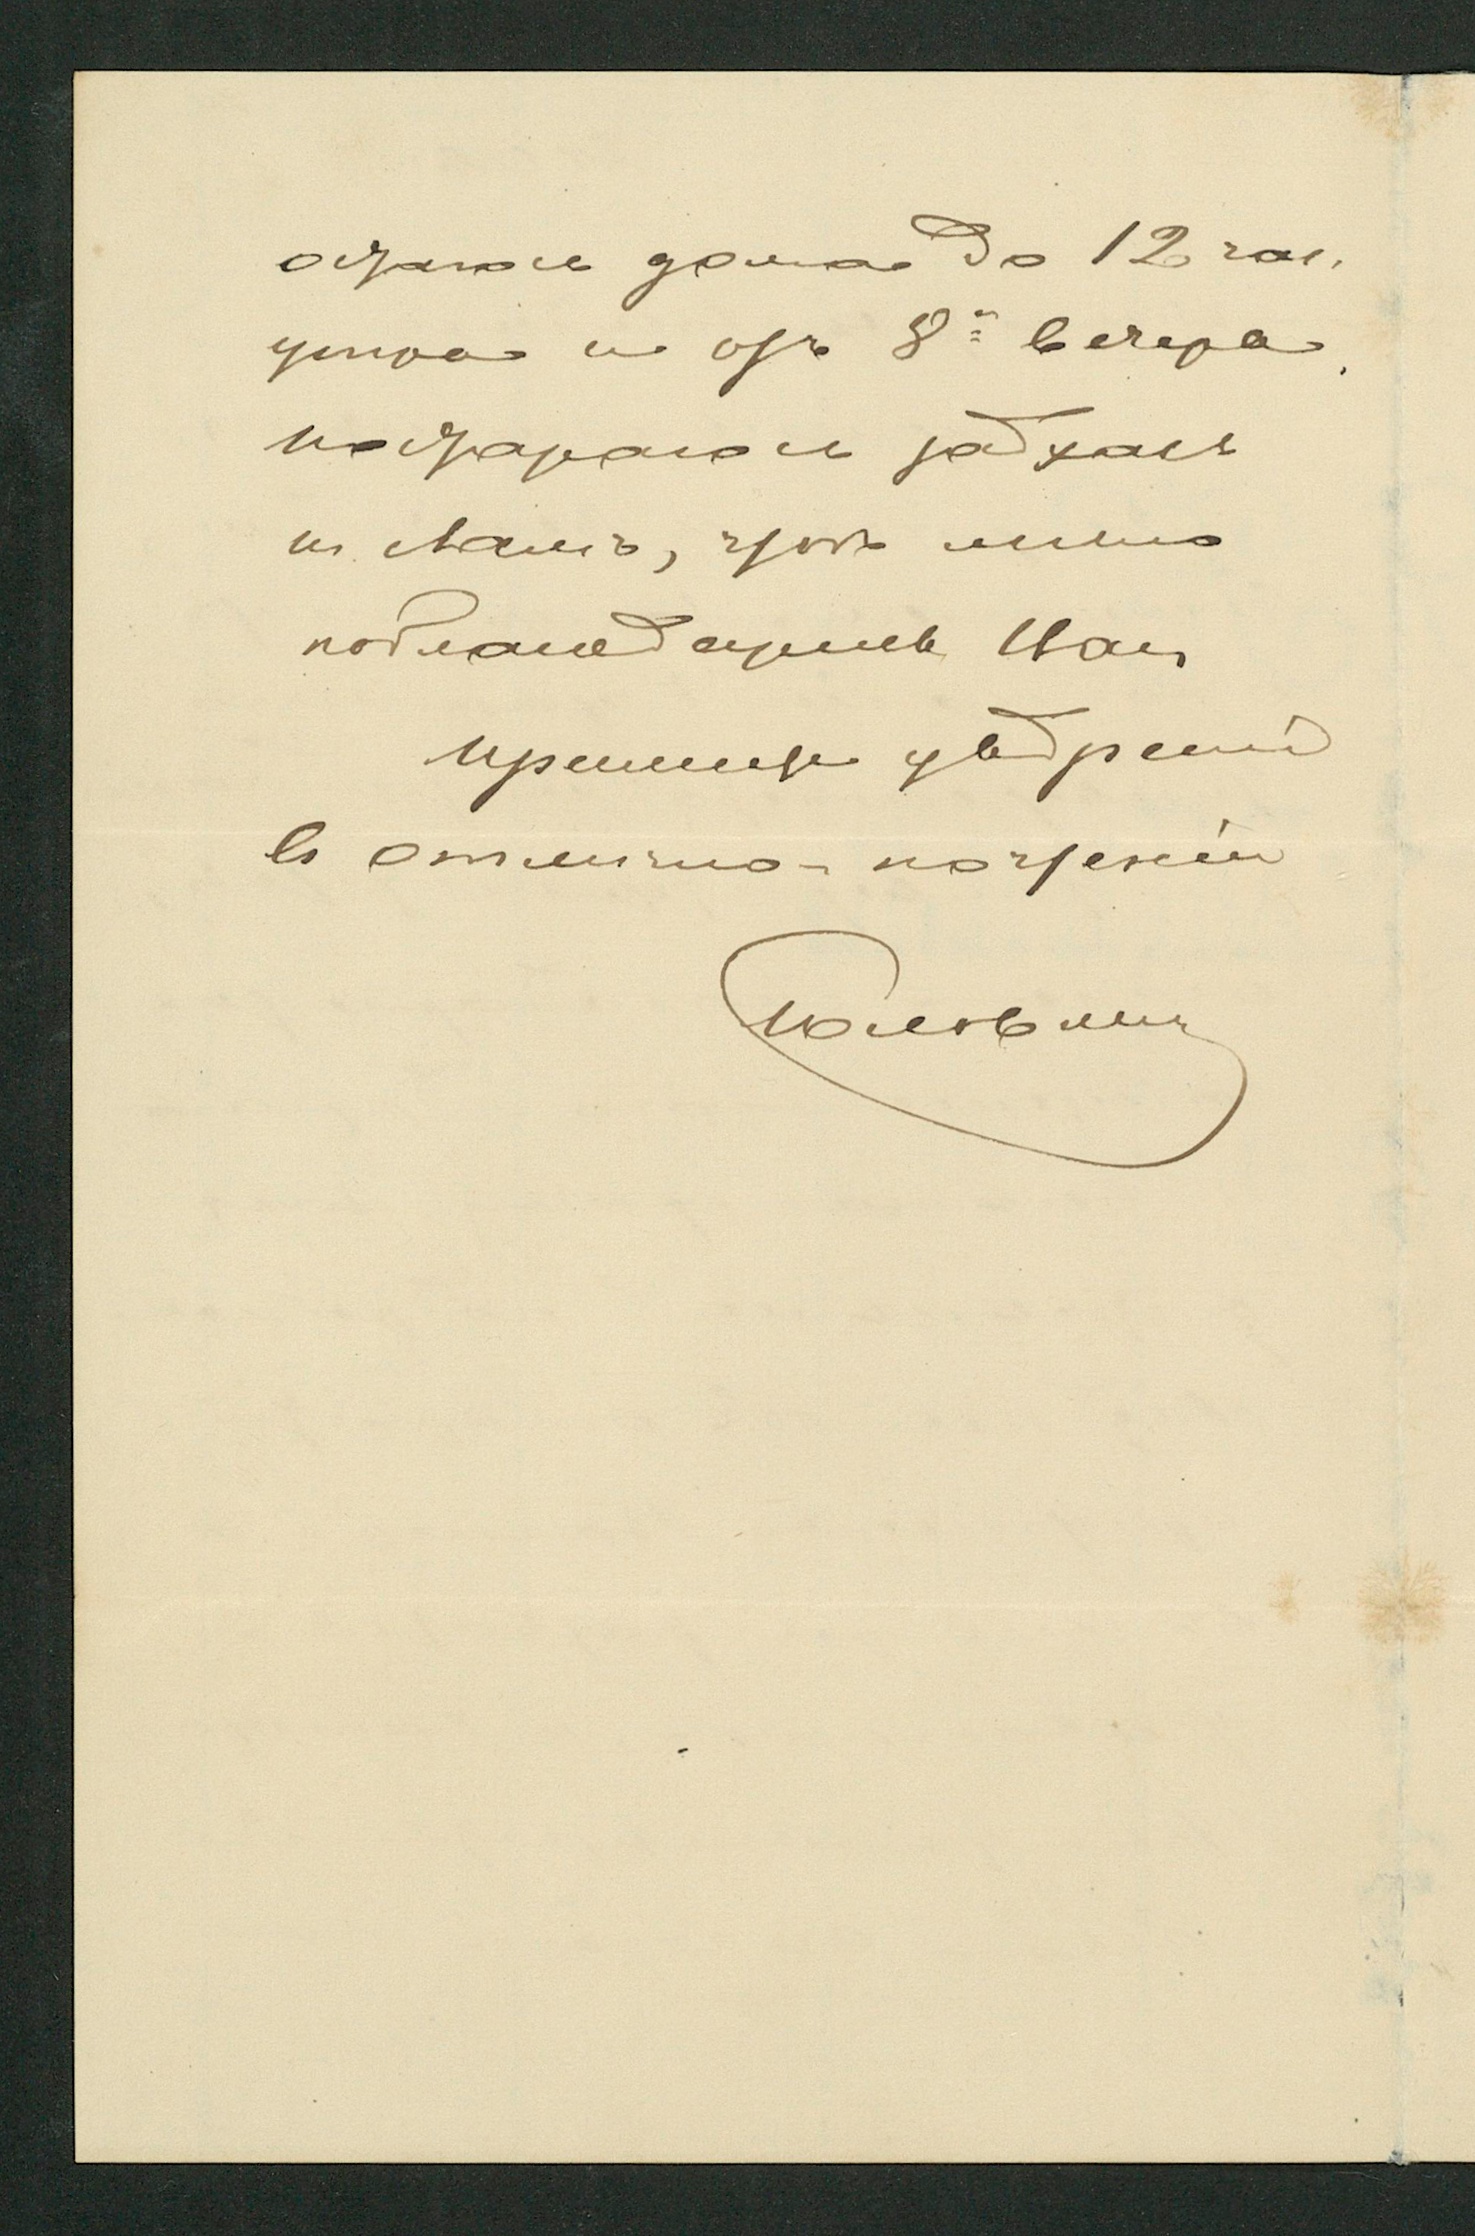 остаюсь дома до 12 час.
утра и отъ 8-и вечера,
постараюсь заѣхать
къ Вамъ, чтобъ лично
поблагодарить Вас,
примите увѣреніе
въ отлично-почтеніи
Головнин